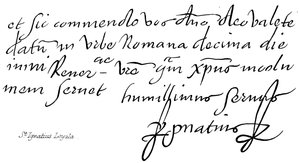 et sic commendo vos dño, deo valete
datũ in vrbe Romana decima die
iunii Rener ac vre q̃m xpũs incolu
mem servet
humillimus servus
Ignatius
Sᵗ Ignatius Loyola